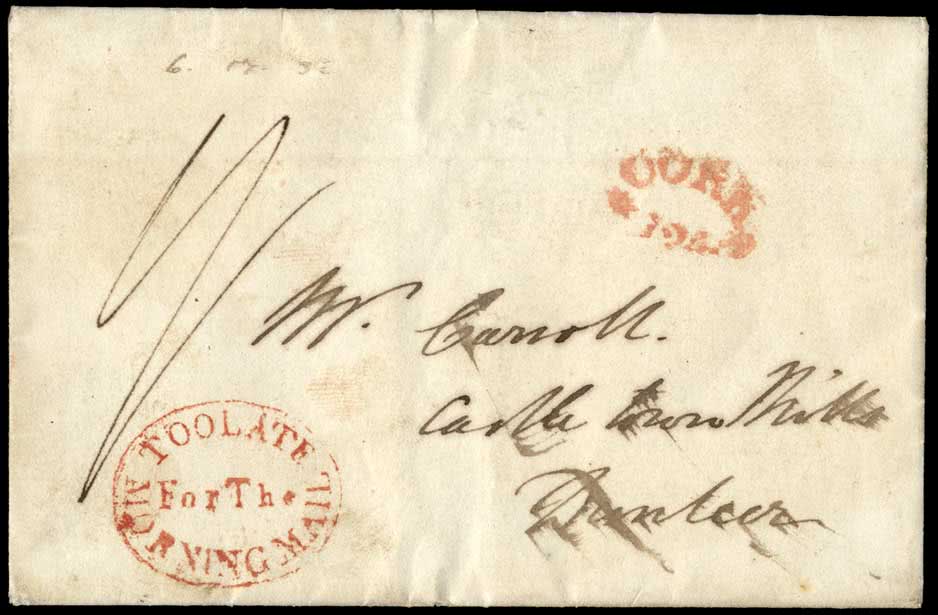 CORK
124
Mr. Carroll.
Castle town Mills
Dunleer
TOO LATE
For The
MORNING MAIL